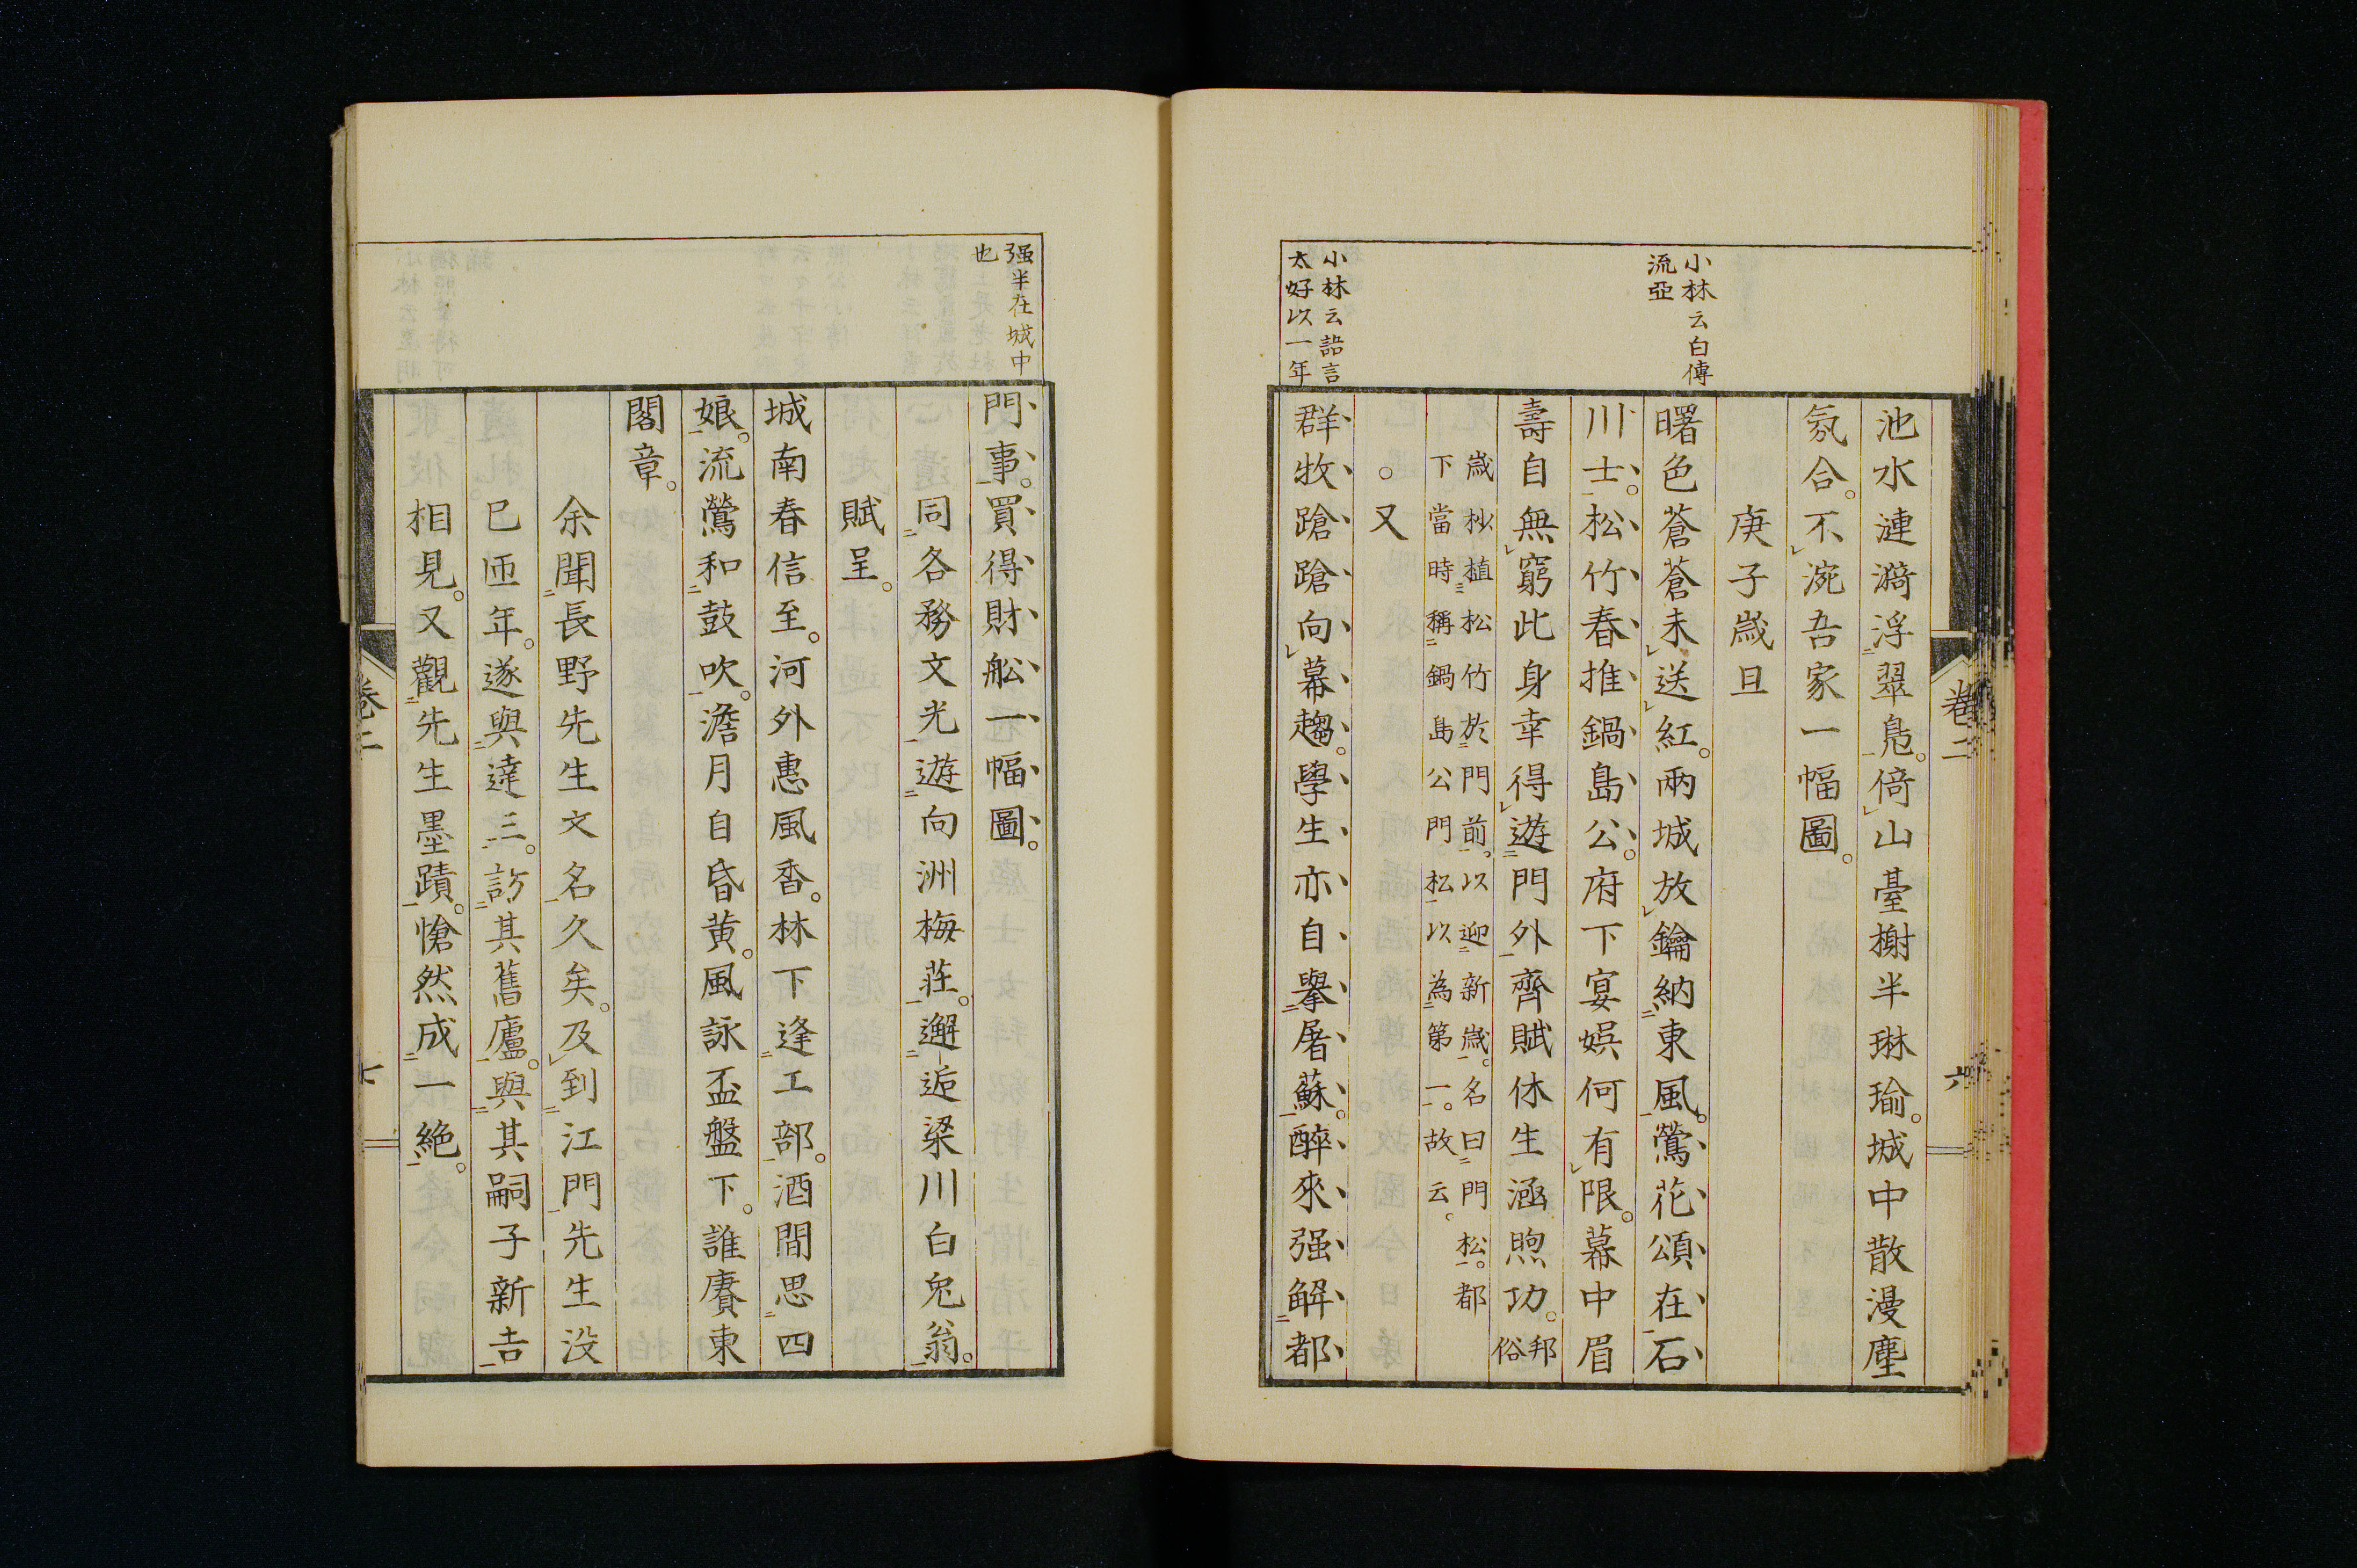 小林云白傳
流亞
小林云語言
太好以一年
池水漣漪浮翠鳧。倚山臺榭半琳瑜。城中散漫塵
氛合。不涴吾家一幅圖。
庚子歲旦
曙色蒼蒼未送紅。兩城放鑰納東風。鶯花頌在石
川士。松竹春推鍋島公。府下宴娯何有限。幕中眉
壽自無窮此身幸得遊門外齊賦休生涵煦功。邦俗
歲杪植松竹於門前。以迎新歲。名曰門松。都
下當時稱鍋島公門松以為第一。故云。
。又
群牧蹌蹌向幕趨。學生亦自擧屠蘇。醉來强解都
卷二
六
强半在城中
也
門事。買得財舩一幅圖。
同各務文光遊向洲梅莊。邂逅梁川白兔翁。
賦呈。
城南春信至。河外惠風香。林下逢工部。酒間思四
娘。流鶯和鼓吹。澹月自昏黄。風詠盃盤下。誰賡東
閣章。
余聞長野先生文名久矣。及到江門先生没
已匝年。遂與達三。訪其舊廬。與其嗣子新吉
相見。又觀先生墨蹟。愴然成一絶。
卷二
七